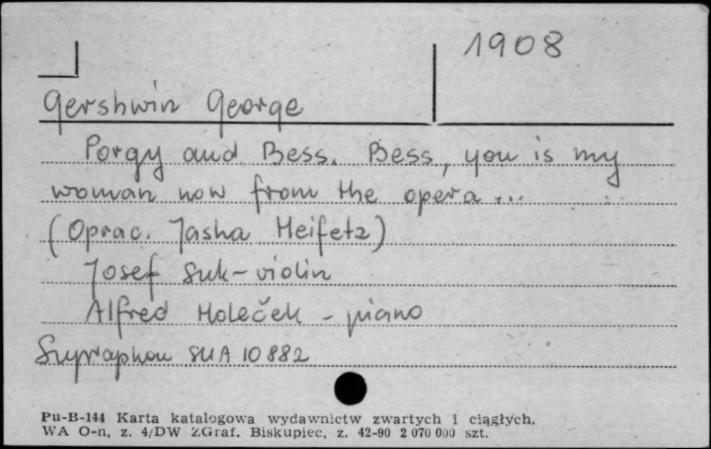 1908
Gershwin George
Porgy and Bess. Bess, you is my
woman now from the opera ...
(Oprac. Jasha Heifetz)
Josef Suk - violin
Alfred Holeček - piano
Supraphon SUA 10882
Pu-B-144 Karta katalogowa wydawnictw zwartych i ciągłych.
WA O-n, z. 4/DW ZGraf. Biskupiec, z. 42-90 2 070 000 szt.